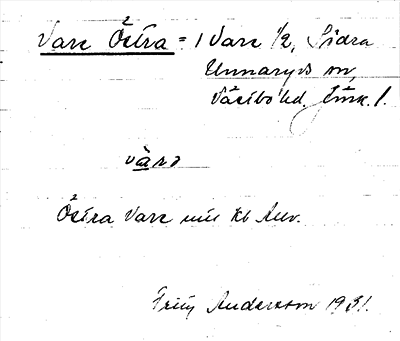 Vare Östra = 1 Vare 1/2, Södra
Unnaryds sn,
Västbo hd. Jönk. l.
våra
Östra Vare
Andersson 1931.